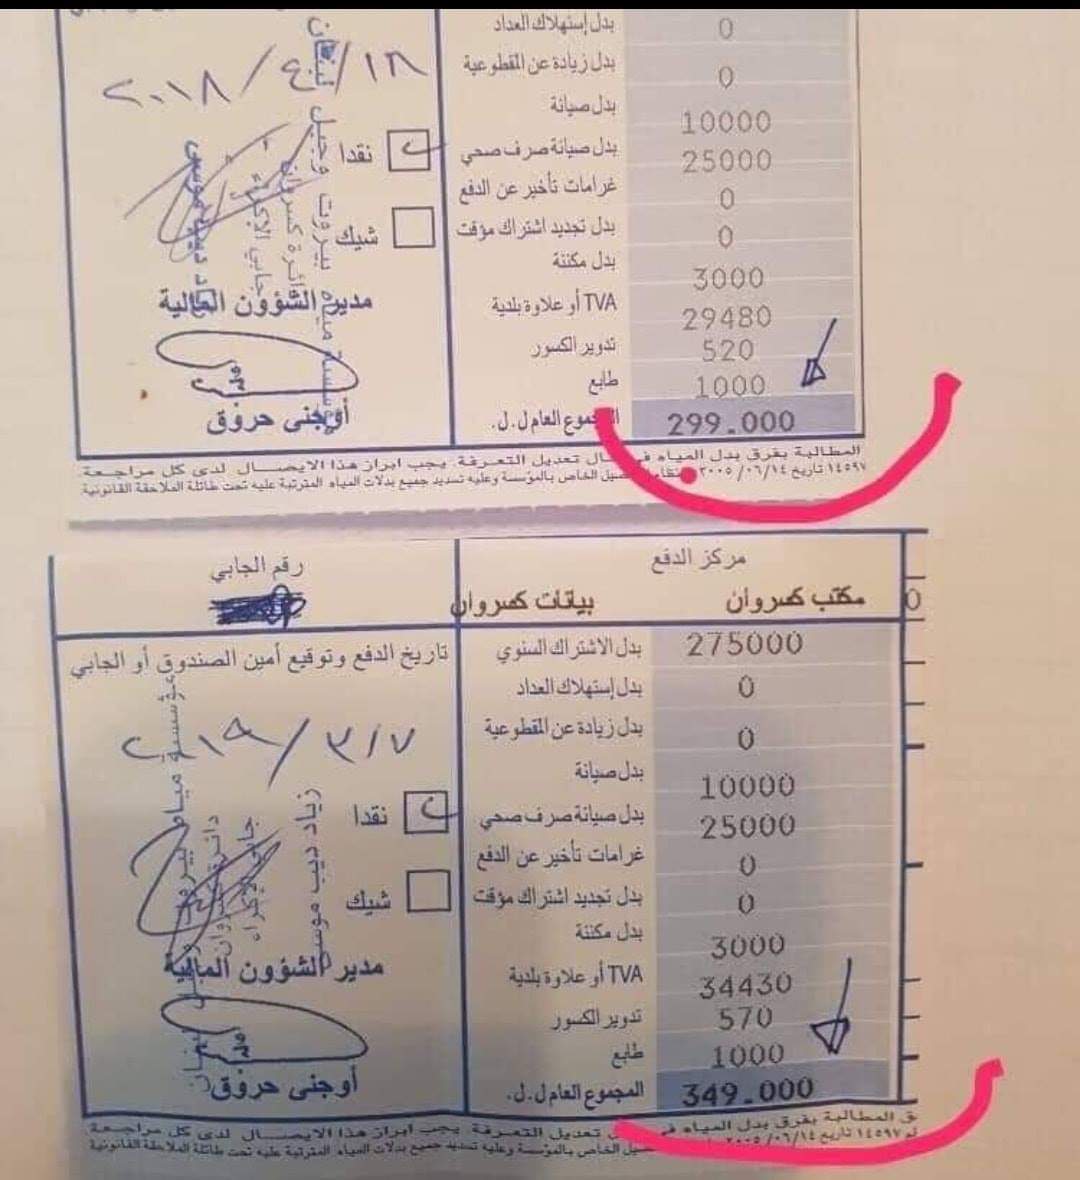 بدل إستهلاك العداد 0
بدل زيادة عن المقطوعية 0
بدل صيانة 10000
بدل صيانة صرف صحي 25000
غرامات تأخير عن الدفع 0
بدل تجديد اشتراك مؤقت 0
بدل مكننة 3000
TVA أو علاوة بلدية 29480
تدوير الكسور 520
طابع 1000
المجموع العام ل.ل. 299.000
٢٠١٨/٤/١٨
نقدا
شيك
مؤسسة مياه بيروت وجبل لبنان
دائرة كسروان
جابي الإكراء
زياد ديب موسى
مدير الشؤون المالية
أوجني حروق
المطالبة بفرق بدل المياه في حال تعديل التعرفة. يجب ابراز هذا الايصال لدى كل مراجعة
١٤٥٩٧ تاريخ ٢٠٠٥/٠٦/١٤ الخاص بالمؤسسة وعليه تسديد جميع بدلات المياه المترتبة عليه تحت طائلة الملاحقة القانونية
مركز الدفع
رقم الجابي
مكتب كسروان
بيانات كسروان
0
بدل الاشتراك السنوي 275000
بدل إستهلاك العداد 0
بدل زيادة عن المقطوعية 0
بدل صيانة 10000
بدل صيانة صرف صحي 25000
غرامات تأخير عن الدفع 0
بدل تجديد اشتراك مؤقت 0
بدل مكننة 3000
TVA أو علاوة بلدية 34430
تدوير الكسور 570
طابع 1000
المجموع العام ل.ل. 349.000
تاريخ الدفع وتوقيع أمين الصندوق أو الجابي
٢٠١٩/٣/٧
نقدا
شيك
مؤسسة مياه بيروت
دائرة كسروان
جابي الإكراء
زياد ديب موسى
مدير الشؤون المالية
أوجني حروق
المطالبة بفرق بدل المياه في تعديل التعرفة. يجب ابراز هذا الايصال لدى كل مراجعة
١٤٥٩٧ تاريخ ٢٠٠٥/٠٦/١٤ الخاص بالمؤسسة وعليه تسديد جميع بدلات المياه المترتبة عليه تحت طائلة الملاحقة القانونية